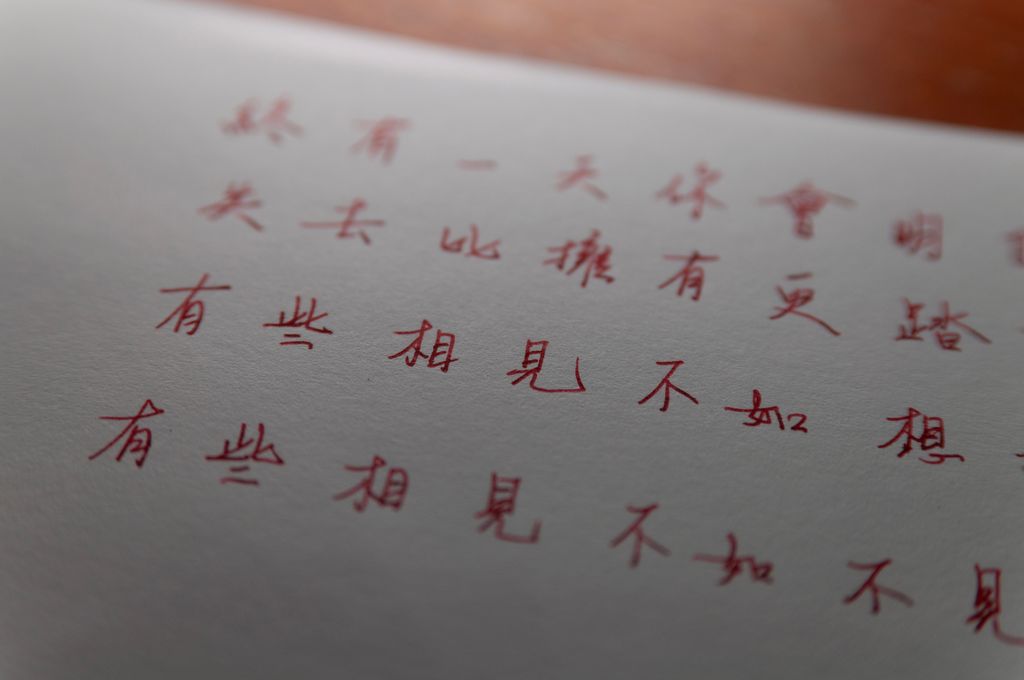 終有一天你會明
失去比擁有更踏
有些相見不如想
有些相見不如不見